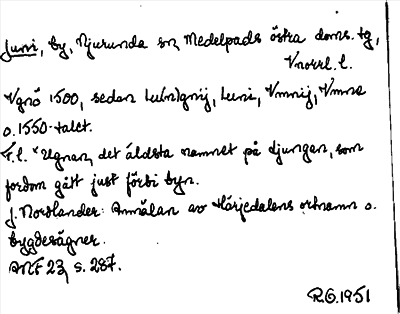 Juni, by, Njurunda sn, Medelpads östra doms. tg,
Vnorrl. l.
Vgnö 1500, sedan Lu(n)gnij, Luni, Vmnij, Vmne
o. 1550-talet.
F.l. *Ugnan, det äldsta namnet på Ljungan, som
fordom gått just förbi byn.
J. Nordlander: Anmälan av Härjedalens ortnamn o.
bygdesägner.
ANF 23, s. 287.
R.G. 1951